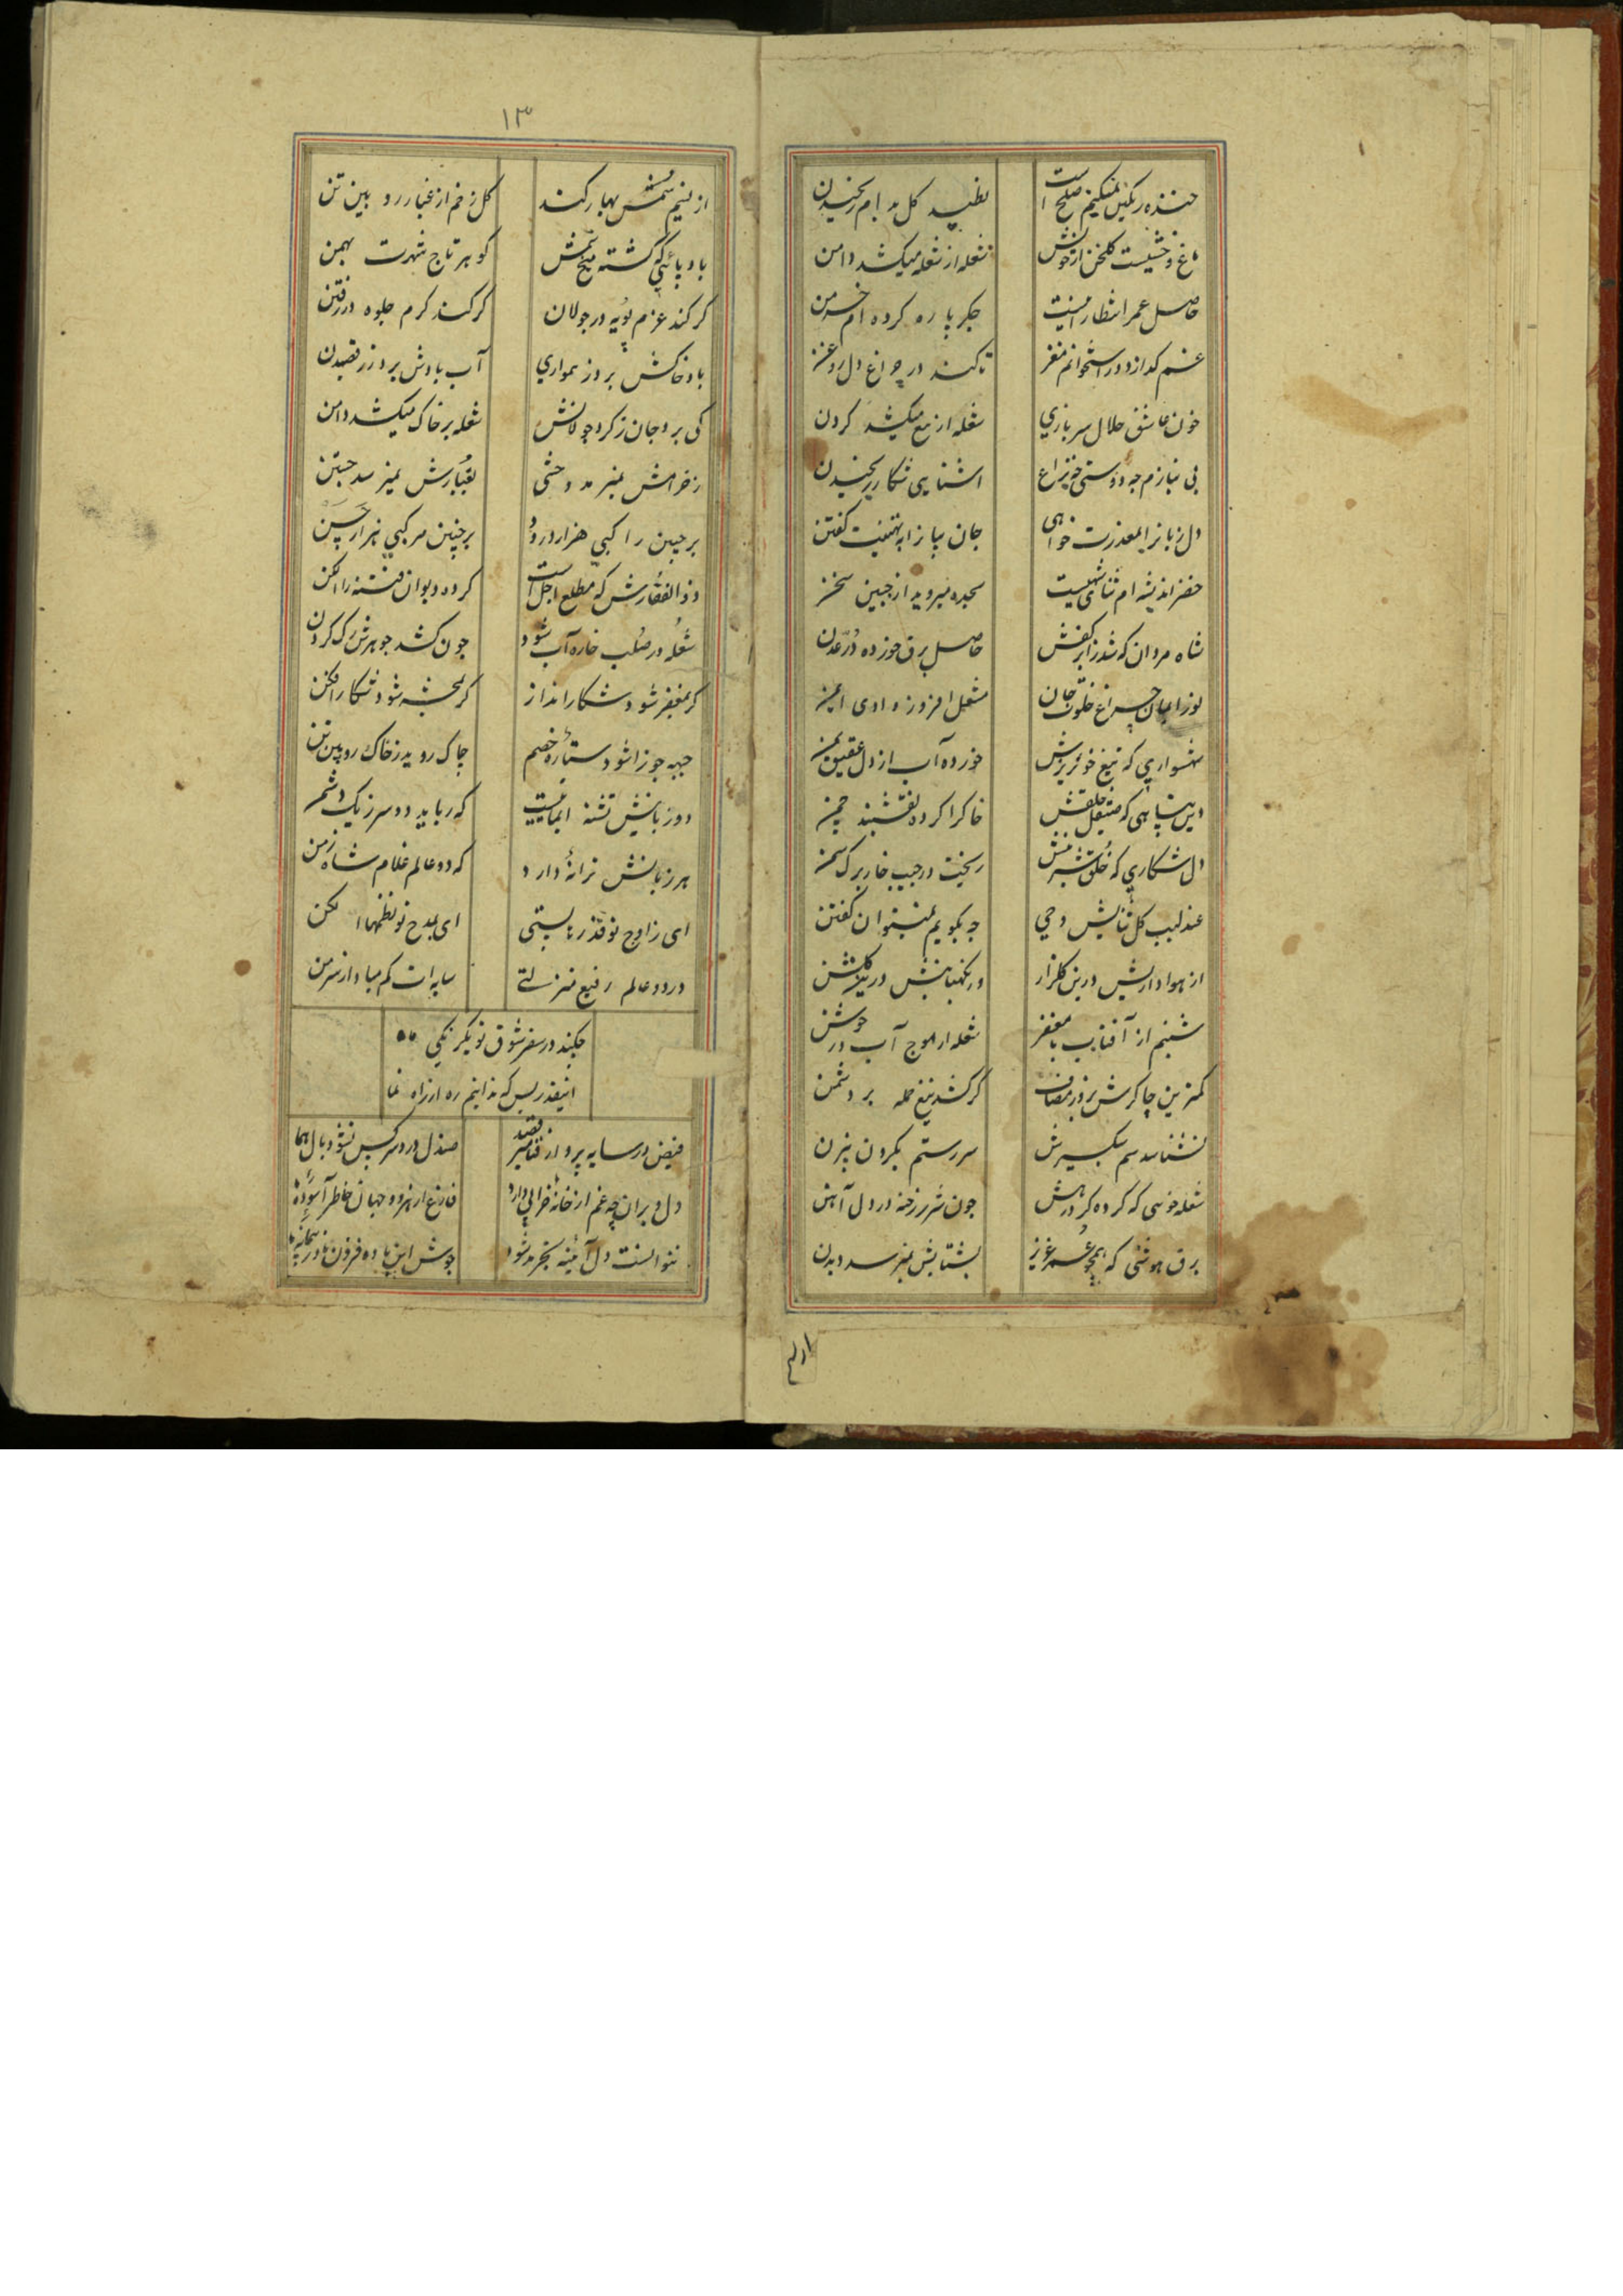 خنده رنگین نمکینم صلح است تظپید کل بدابم رنجیدن
باغ وحشیست کلخن از جوشش شعله از شعله میکشد دامن
حاصل عمر انتظار اینست جکر پاره کرده ام خرمن
غم کدازد در استخوانم مغز تا کند در چراغ دل روغن
خون عاشق حلال سربازی شعله از تیغ میکشد کردن
بی نیازم چه دوستی چه نزاع اشنایی شکار رنجیدن
دل زبانرا بمعذرت خواهی جان بیانرا به تهنیت کفتن
خضر اندیشه ام ثنای شهیست سجده میروید از جبین سخن
شاه مردان که شد ز ابر کفش حاصل برق خورده در عدن
نور ایمان چراغ خلوت جان مشعل افروز وادی ایمن
شهسواری که تیغ خونریزش خورده آب از دل عقیق یمن
دین پناهی که صیقل خلقش خاکرا کرده نقشبند چمن
دل شکاری که خلق شیرینش ریخت در جیب خار برک سمن
عندلیب کل ثنایش وحی چه بکویم نمیتوان کفتن
از هواداریش درین کلزار در نکهبانیش درین کلشن
شبنم از آفتاب با مغفر شعله از موج آب در جوشن
کمترین چاکرش بروز مصاف کر کشد تیغ حمله بر دشمن
نشناسد سم سبکسیرش سر رستم بکردن بیژن
شعله خویی که کرده کرد رهش چون شرر رخنه در دل آهن
برق هوشی که همچو عمر عزیز بشتابش نمیرسد دیدن
۱۳
از نسیم سمش بهار کند کل زخم از غبار رویین تن
باد پائیکه کشته میخ سمش کوهر تاج شهرت بهمن
کر کند عزم پویه در جولان کر کند کرم جلوه در رفتن
باد خاکش برد ز همواری آب بادش برد ز رقصیدن
کی برد جان ز کرد جولانش شعله بر خاک میکشد دامن
زخرامش نمیرمد وحشی بغبارش نمیرسد جستن
برچنین راکبی هزار درود برچنین مرکبی هزار احسن
ذوالفقارش که مطلع اجل است کرده دیوان فتنه را الکن
شعله در صلب خاره آب شود چون کشد جوهرش رک کردن
کر بمغفر شود شکار انداز کر بجبه شود شکار افکن
جبهه جوزا شود ستاره خصم چاک روید ز خاک رویین تن
دو زبانیش تشنه ایمانیست که رباید دو سر ز یک دشمن
هر زبانش ترانه دارد که دو عالم غلام شاه زمن
ای ز اوج تو قدرتا پستی ای بمدح تو نطقها الکن
در دو عالم رفیع منزلتی سایه ات کم مباد از سر من
میکند در سفر شوق تو یکرنکی
اینقدر بس که ندانیم ره از راه نما
فیض در سایه پرواز قناعت صندل درد سر کس نشود بال هما
دل ویران چه غم از خانه خرابی دارد فارغ از هر دو جهان خاطر آسوده ما
نتوانست دل آیینه مجرد شود جوش این باده فزون